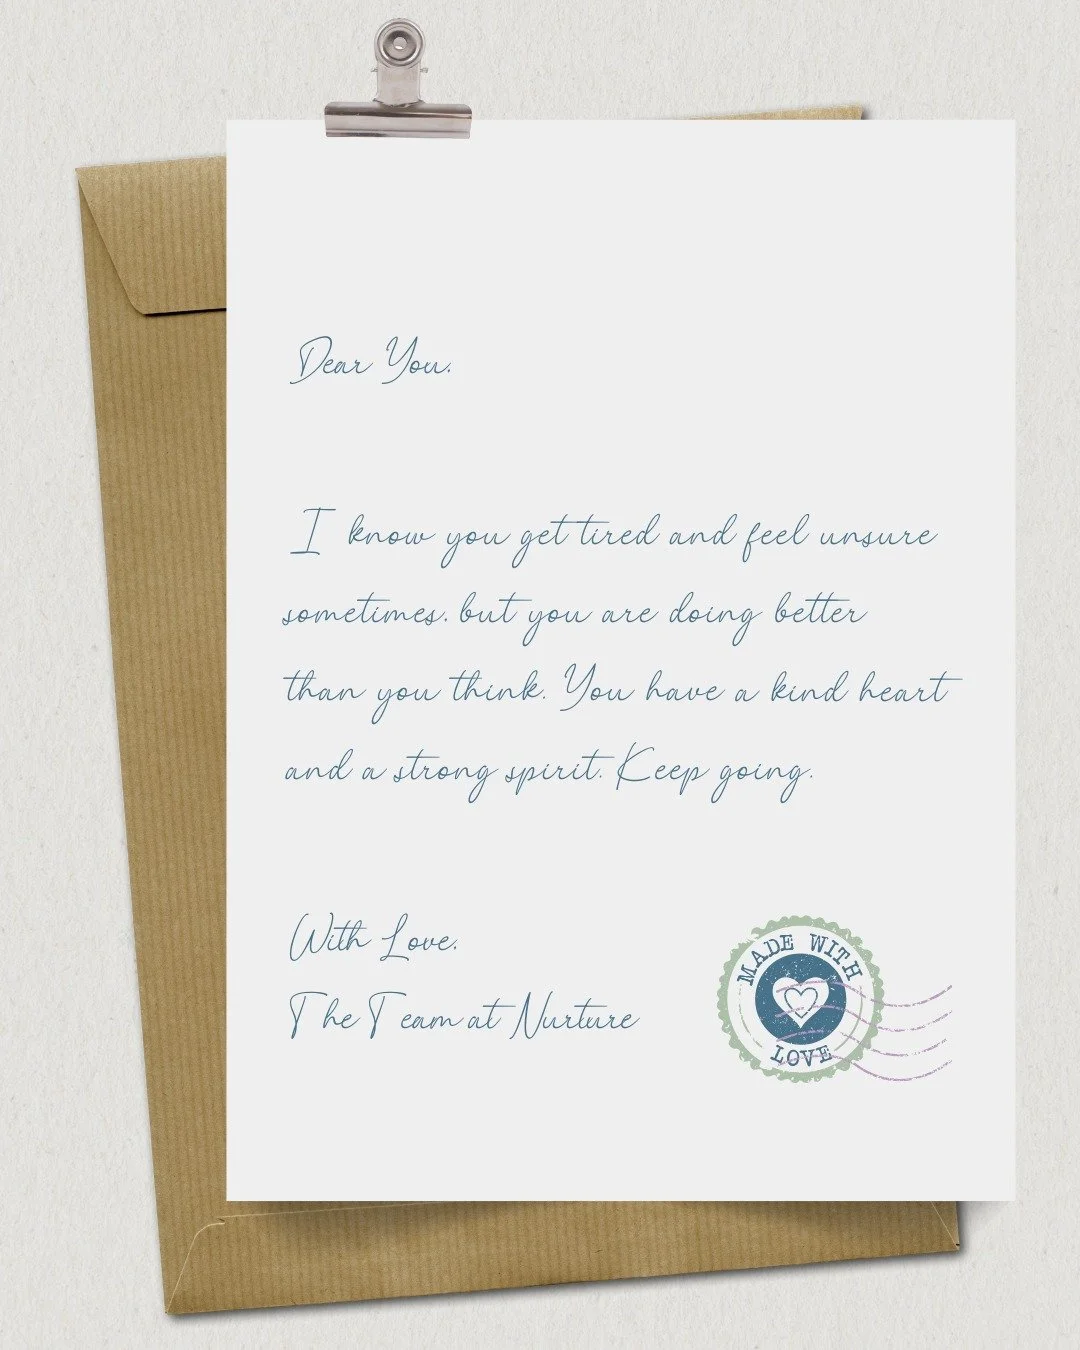 Dear You,
I know you get tired and feel unsure
sometimes, but you are doing better
than you think. You have a kind heart
and a strong spirit. Keep going.
With Love,
The Team at Nurture
MADE WITH
LOVE